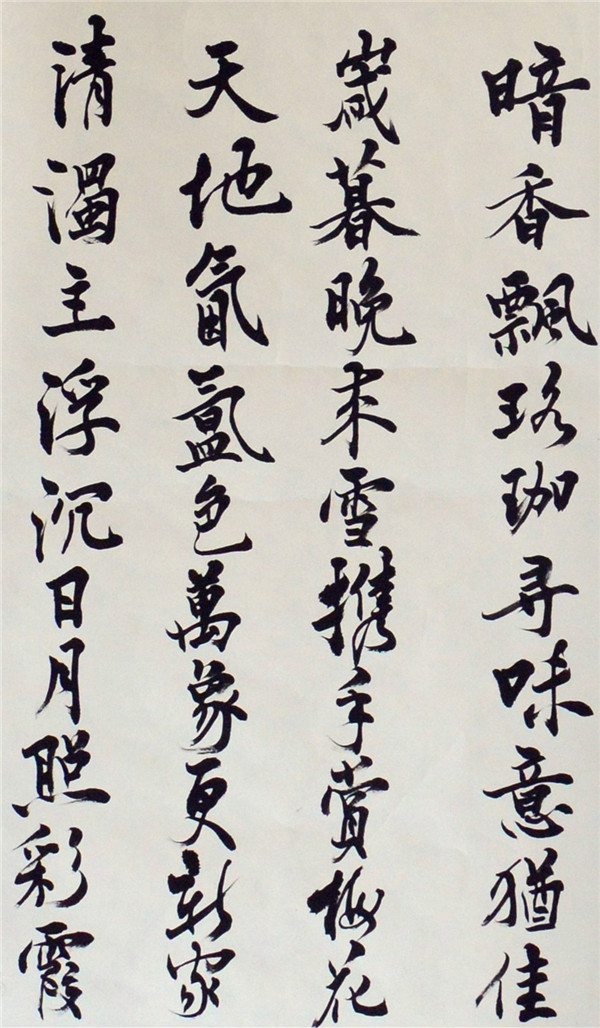 暗香飄珞珈尋味意猶佳
歲暮晚來雪携手賞梅花
天地氤氳色萬象更新家
清濁主浮沉日月照彩霞